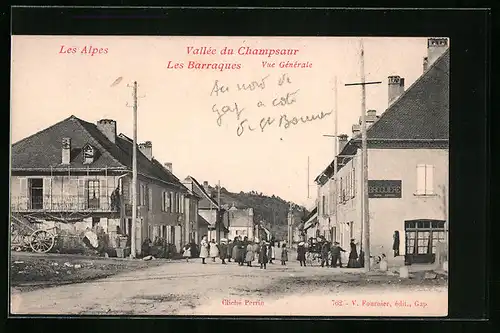 Les Alpes
Vallée du Champsaur
Les Barraques Vue Générale
au nord de
gap a côté
de St Bonnet
Cliché Perrin
762 - V. Fournier, édit., Gap